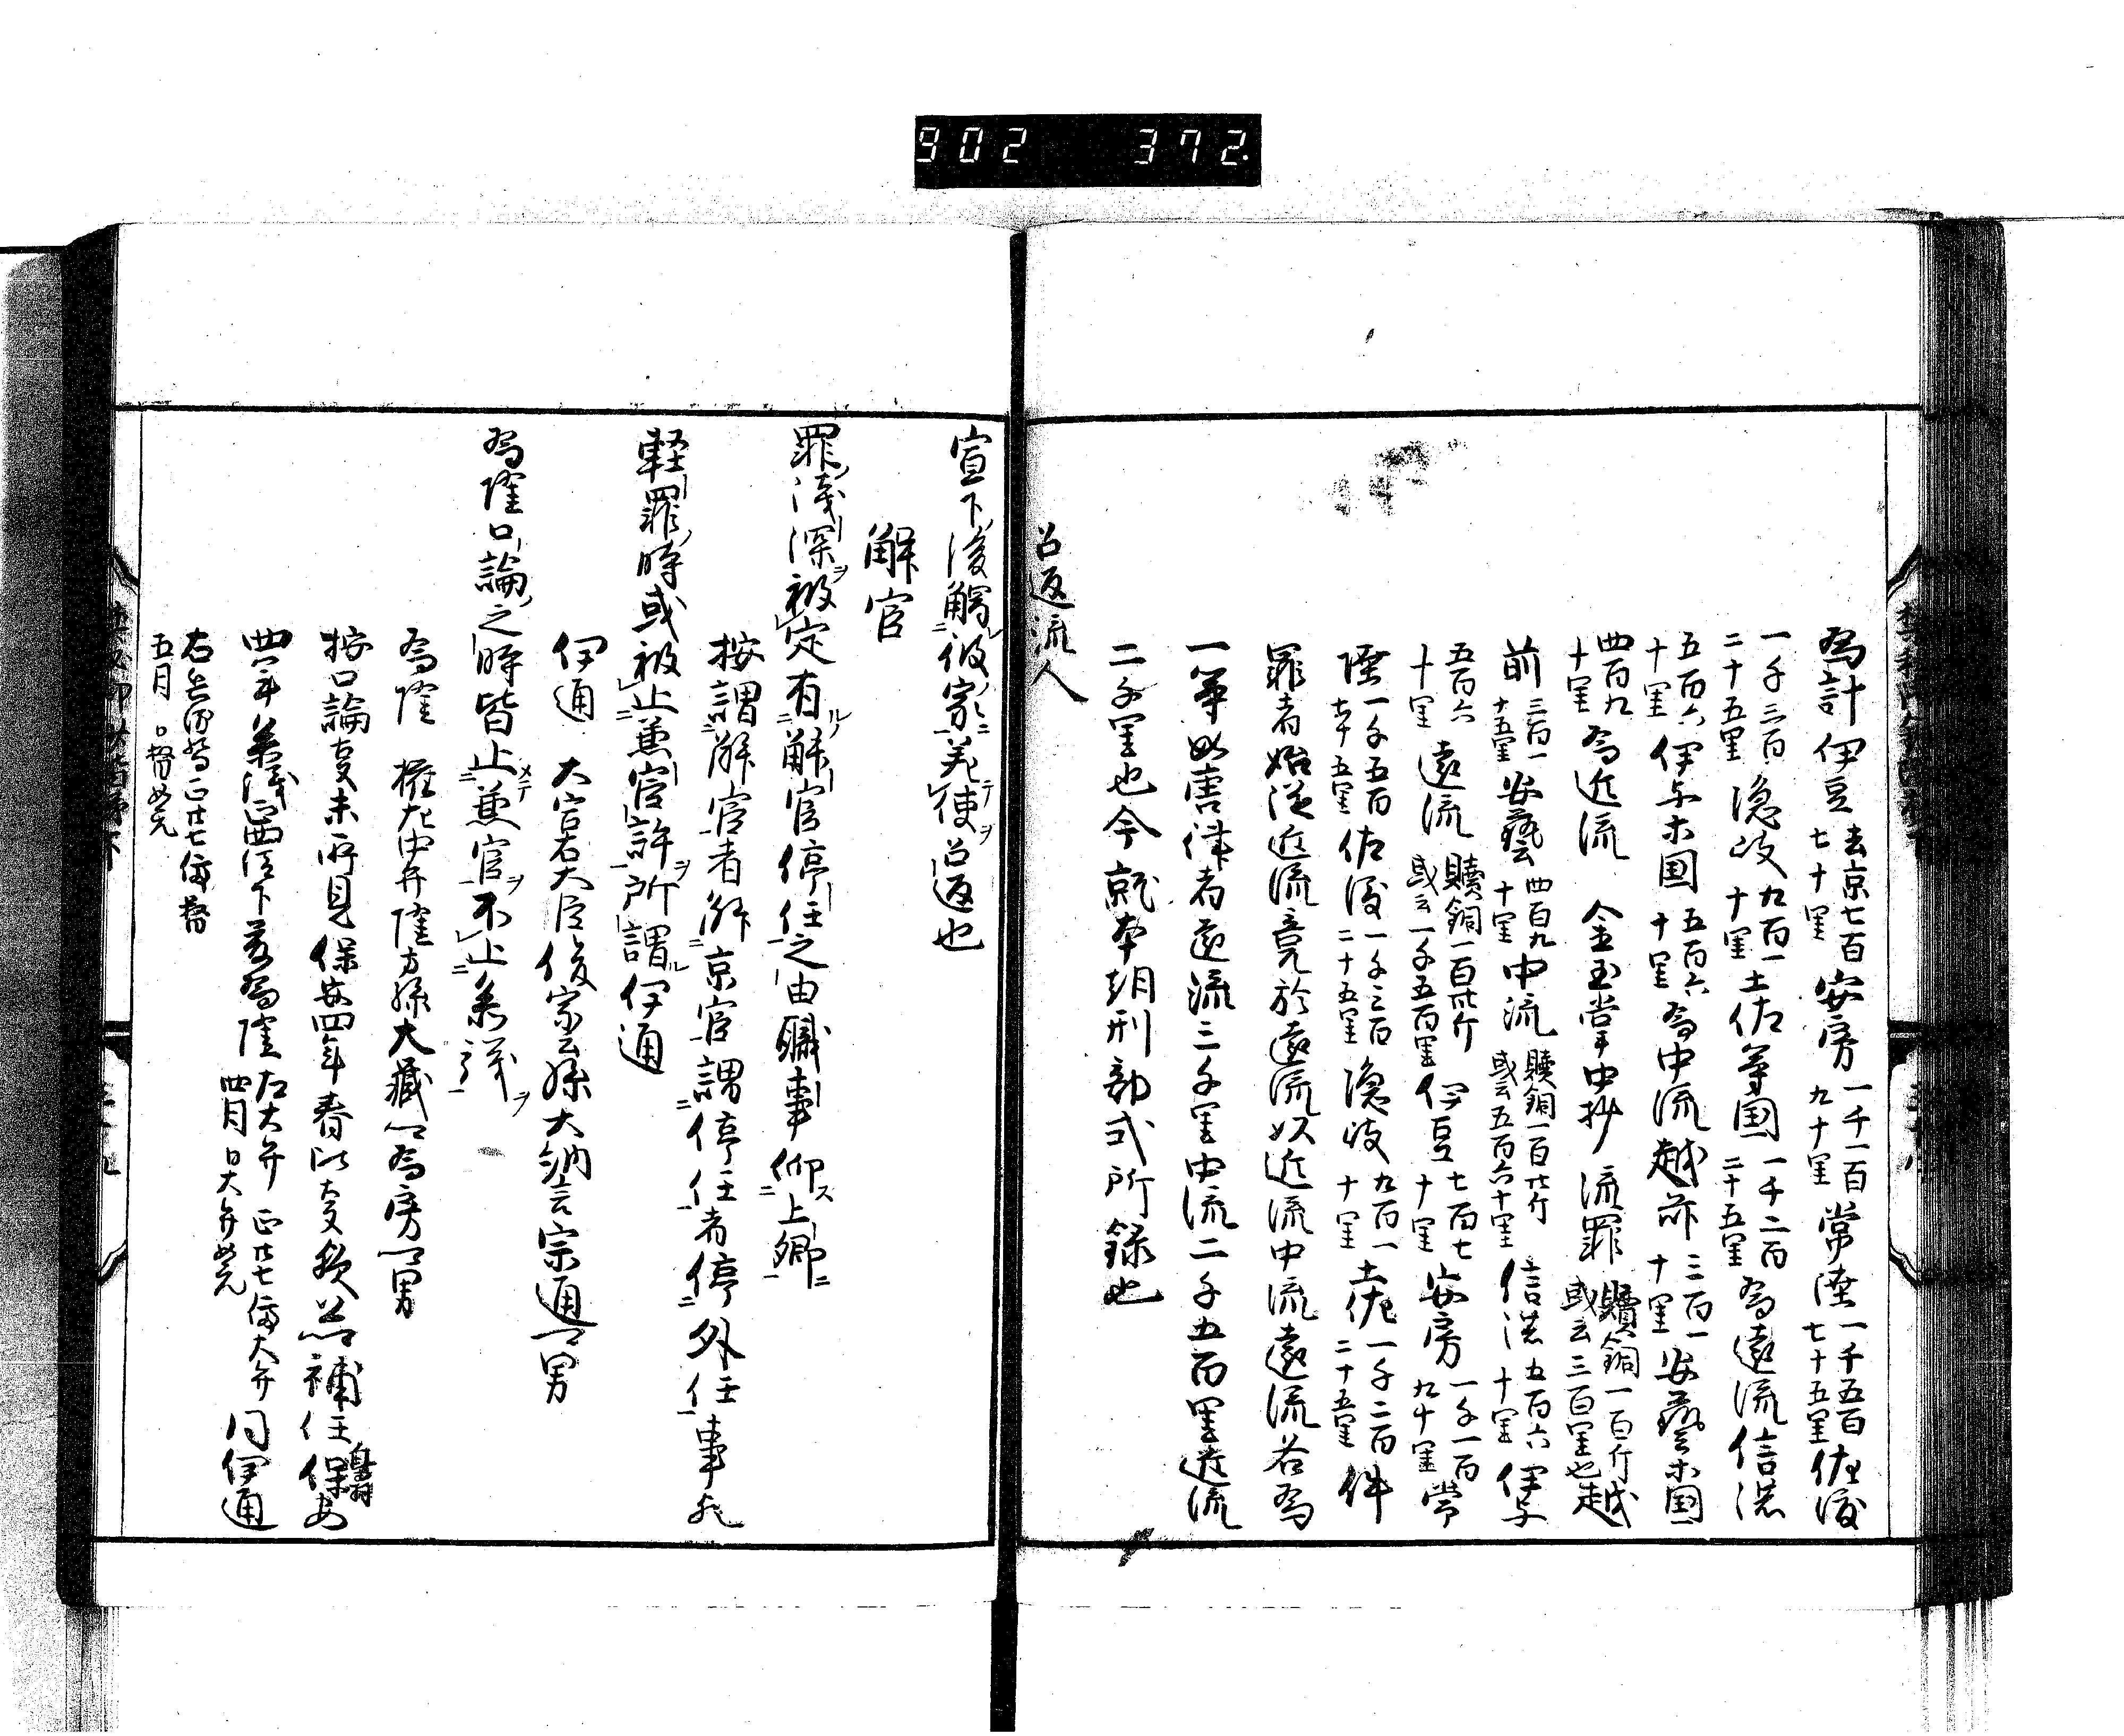 902 372.
為計伊豆去京七百七十里安房一千一百九十里常陸一千五百七十五里佐渡
一千三百二十五里隠岐九百一十里土佐等国一千二百二十五里為遠流信濃
五百六十里伊与木国五百六十里為中流越前三百一十里安藝木国
四百九十里為近流 金玉掌中抄 流罪贖銅一百斤或云三百里也越
前三百一十五里安藝四百九十里中流贖銅一百廿斤或云五百六十里信濃五百六十里伊与
五百六十里遠流贖銅一百卌斤或云一千五百里伊豆七百七十里安房一千一百九十里常
陸一千五百七十五里佐渡一千三百二十五里隠岐九百一十里土佐一千二百二十五里件
罪者始従近流竟於遠流以近流中流遠流各為
一等如唐律者遠流三千里中流二千五百里近流
二千里也今就本朝刑部式所録也
召返流人
宣下後觸彼家ニ差使ヲ召返也
解官
罪浅深ヲ被定有ルニ解官停任之由職事仰ス上卿ニ
按謂解官者解京官謂停任者停外任事也
軽罪時或被止兼官許ヲ所謂ル伊通
伊通 大宮右大臣俊家公孫大納言宗通一男
為隆口論之時皆止メテ兼官ヲ不止参議ヲ
為隆 権左中弁隆方孫大蔵卿為房一男
按口論事未所見保安四年春以事発然補任保安
四年参議正四位下藤為隆左大弁 正廿七停大弁 四月 日大弁如元 同伊通
右兵衛督正廿七停督
五月 日督如元